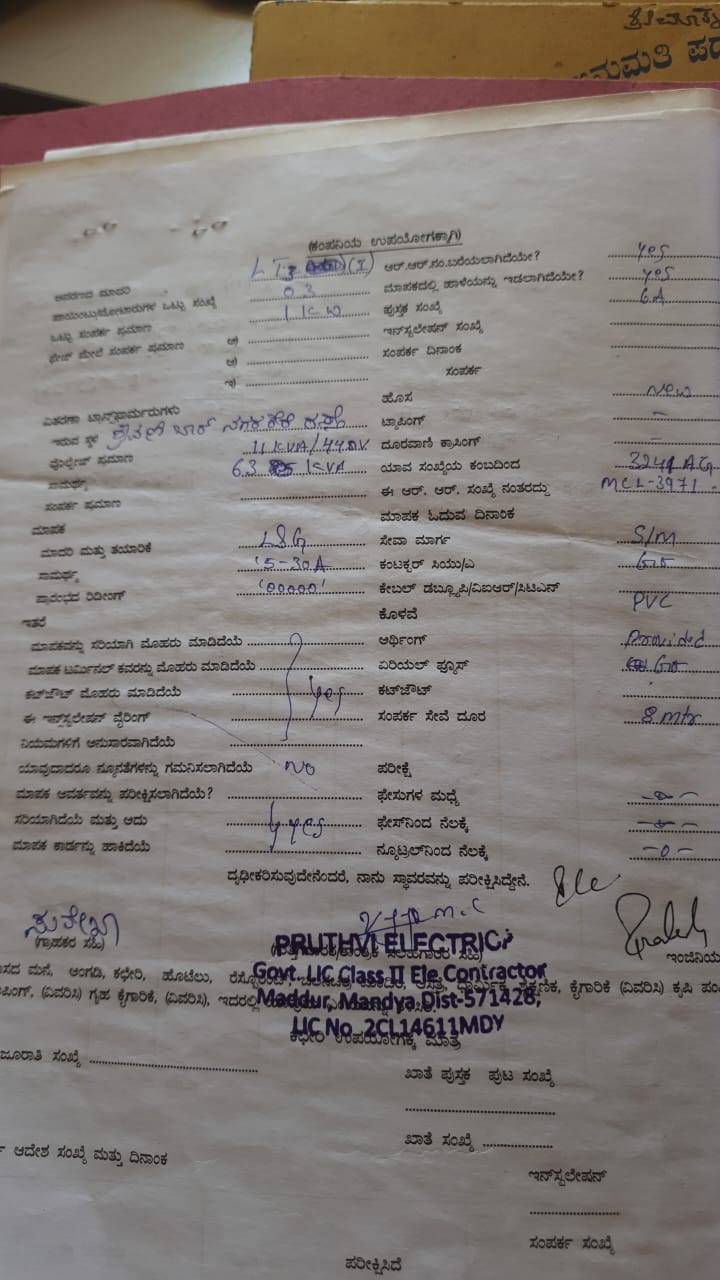 ಅನುಮತಿ ಪದ
(ಕಂಪನಿಯ ಉಪಯೋಗಕ್ಕಾಗಿ)
ಆವರಣದ ಮಾದರಿ LT3 (I) ಆರ್.ಆರ್.ನಂ.ಬರೆಯಲಾಗಿದೆಯೇ? yes
ಪಾಯಿಂಟ್ಸು/ಮೋಟಾರುಗಳ ಒಟ್ಟು ಸಂಖ್ಯೆ 03 ಮಾಪಕದಲ್ಲಿ ಹಾಳೆಯನ್ನು ಇಡಲಾಗಿದೆಯೇ? yes
ಒಟ್ಟು ಸಂಪರ್ಕ ಪ್ರಮಾಣ 1 KW ಪುಸ್ತಕ ಸಂಖ್ಯೆ 6A
ಫೇಜ್ ಮೇಲೆ ಸಂಪರ್ಕ ಪ್ರಮಾಣ ಇನ್‌ಸ್ಟಲೇಷನ್ ಸಂಖ್ಯೆ
ಸಂಪರ್ಕ ದಿನಾಂಕ
ಇ) ಸಂಪರ್ಕ
ವಿತರಣಾ ಟ್ರಾನ್ಸ್‌ಫಾರ್ಮರುಗಳು ಹೊಸ New
ಇರುವ ಸ್ಥಳ ಟ್ಯಾಪಿಂಗ್ –
ವೋಲ್ಟೇಜ್ ಪ್ರಮಾಣ 11 KVA/440V ದೂರವಾಣಿ ಕ್ರಾಸಿಂಗ್ –
ಸಾಮರ್ಥ್ಯ 63 KVA ಯಾವ ಸಂಖ್ಯೆಯ ಕಂಬದಿಂದ
ಸಂಪರ್ಕ ಪ್ರಮಾಣ ಈ ಆರ್. ಆರ್. ಸಂಖ್ಯೆ ನಂತರದ್ದು MCL-3971
ಮಾಪಕ ಮಾಪಕ ಓದುವ ದಿನಾಂಕ
ಮಾದರಿ ಮತ್ತು ತಯಾರಿಕೆ L&G ಸೇವಾ ಮಾರ್ಗ S/M
ಸಾಮರ್ಥ್ಯ 5-30A ಕಂಟಕ್ಟರ್ ಸಿಯು/ಎ
ಪ್ರಾರಂಭದ ರಿಡಿಂಗ್ '00000' ಕೇಬಲ್ ಡಬ್ಲ್ಯೂಪಿ/ವಿಐಆರ್/ಸಿಟಿಎಸ್
ಇತರೆ ಕೊಳವೆ PVC
ಮಾಪಕವನ್ನು ಸರಿಯಾಗಿ ಮೊಹರು ಮಾಡಿದೆಯೆ ಆರ್ಥಿಂಗ್ Provided
ಮಾಪಕ ಟರ್ಮಿನಲ್ ಕವರನ್ನು ಮೊಹರು ಮಾಡಿದೆಯೆ ಏರಿಯಲ್ ಫ್ಯೂಸ್
ಕಟ್‌ಔಟ್ ಮೊಹರು ಮಾಡಿದೆಯೆ yes ಕಟ್‌ಔಟ್
ಈ ಇನ್‌ಸ್ಟಲೇಷನ್ ವೈರಿಂಗ್ ಸಂಪರ್ಕ ಸೇವೆ ದೂರ 8 mtr
ನಿಯಮಗಳಿಗೆ ಅನುಸಾರವಾಗಿದೆಯೆ
ಯಾವುದಾದರೂ ನ್ಯೂನತೆಗಳನ್ನು ಗಮನಿಸಲಾಗಿದೆಯೆ No ಪರೀಕ್ಷೆ
ಮಾಪಕ ಆವರ್ತವನ್ನು ಪರೀಕ್ಷಿಸಲಾಗಿದೆಯೆ? ಫೇಸುಗಳ ಮಧ್ಯೆ -0-
ಸರಿಯಾಗಿದೆಯೆ ಮತ್ತು ಅದು yes ಫೇಸ್‌ನಿಂದ ನೆಲಕ್ಕೆ -0-
ಮಾಪಕ ಕಾರ್ಡನ್ನು ಹಾಕಿದೆಯೆ ನ್ಯೂಟ್ರಲ್‌ನಿಂದ ನೆಲಕ್ಕೆ -0-
ದೃಢೀಕರಿಸುವುದೇನೆಂದರೆ, ನಾನು ಸ್ಥಾವರವನ್ನು ಪರೀಕ್ಷಿಸಿದ್ದೇನೆ.
(ಗ್ರಾಹಕರ ಸಹಿ) ಇಂಜಿನಿಯ
PRUTHVI ELECTRIC
Govt. LIC Class II Ele.Contractor
Maddur, Mandya Dist-571428,
LIC No. 2CL14611MDY
ಸದ ಮನೆ, ಅಂಗಡಿ, ಕಛೇರಿ, ಹೊಟೆಲು, ಕೈಗಾರಿಕೆ (ವಿವರಿಸಿ) ಕೃಷಿ ಪಂ
ಪಿಂಗ್, (ವಿವರಿಸಿ) ಗೃಹ ಕೈಗಾರಿಕೆ, (ವಿವರಿಸಿ), ಇದರಲ್ಲಿ
ಕಛೇರಿ ಉಪಯೋಗಕ್ಕೆ ಮಾತ್ರ
ಜೂರಾತಿ ಸಂಖ್ಯೆ ಖಾತೆ ಪುಸ್ತಕ ಪುಟ ಸಂಖ್ಯೆ
ಖಾತೆ ಸಂಖ್ಯೆ
ಆದೇಶ ಸಂಖ್ಯೆ ಮತ್ತು ದಿನಾಂಕ
ಇನ್‌ಸ್ಟಲೇಷನ್
ಸಂಪರ್ಕ ಸಂಖ್ಯೆ
ಪರೀಕ್ಷಿಸಿದೆ